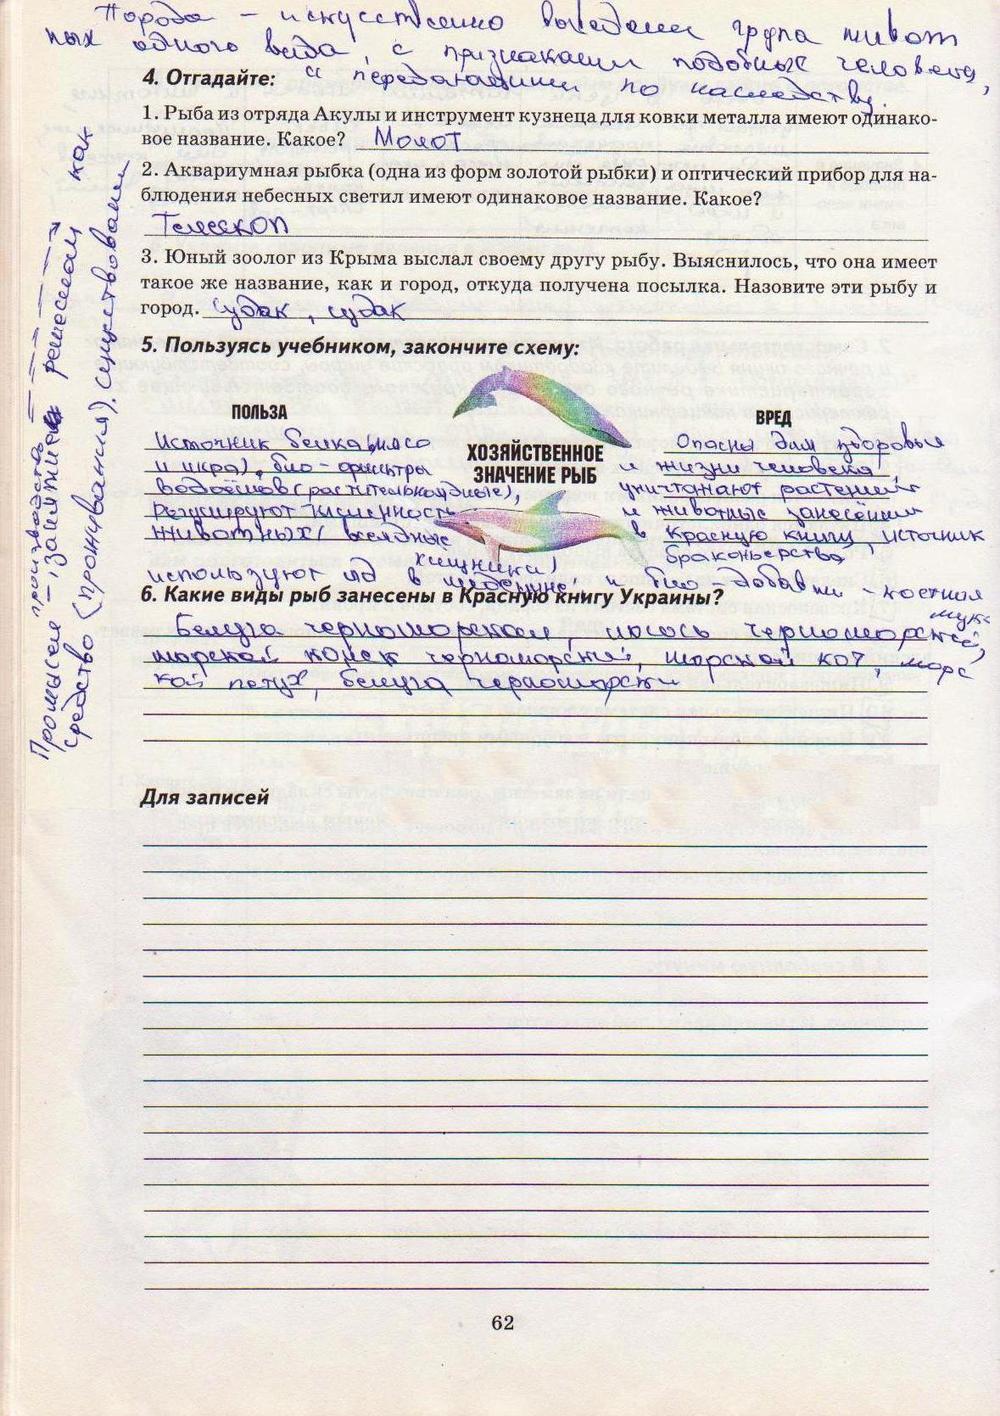 Порода – искусственно выведена група живот
ных одного вида, с признаками подобных человека,
и передающими по наследству.
4. Отгадайте:
1. Рыба из отряда Акулы и инструмент кузнеца для ковки металла имеют одинако-
вое название. Какое? Молот
2. Аквариумная рыбка (одна из форм золотой рыбки) и оптический прибор для на-
блюдения небесных светил имеют одинаковое название. Какое?
Телескоп
3. Юный зоолог из Крыма выслал своему другу рыбу. Выяснилось, что она имеет
такое же название, как и город, откуда получена посылка. Назовите эти рыбу и
город. судак, судак
5. Пользуясь учебником, закончите схему:
ПОЛЬЗА
Источник белка (мясо
и икра), био-фильтры
водоёмов (растительноядные),
регулируют численность
животных (всеядные
хищники)
используют яд в медицине и био-добавки – костная
мука
ХОЗЯЙСТВЕННОЕ
ЗНАЧЕНИЕ РЫБ
ВРЕД
Опасны для здоровья
и жизни человека,
уничтожают растения
и животные занесённы
в Красную книгу, источник
браконьерства
6. Какие виды рыб занесены в Красную книгу Украины?
Белуга черноморская, лосось черноморский,
морской конёк черноморский, морской кот, морс
кой петух, белуга черноморски
Для записей
62
Промысел – занятие ремеслом как
производств
средство (проживания). существовани